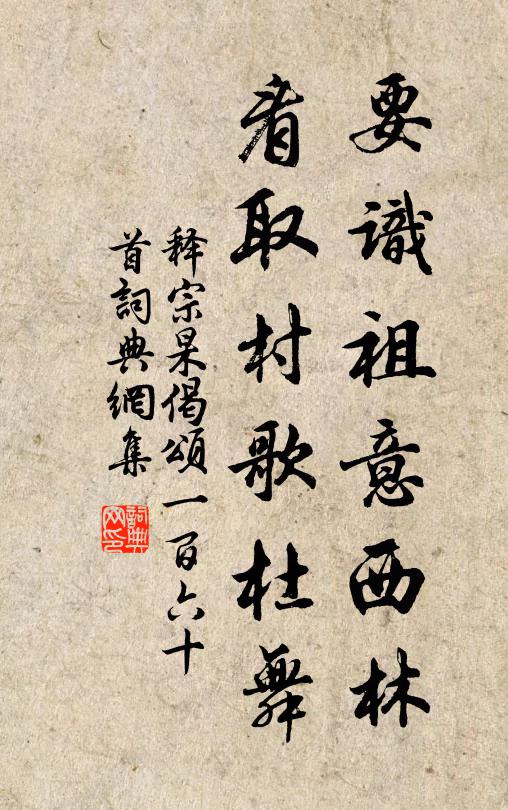 要識祖意西林
看取村歌杜舞
释宗杲偈頌一百六十
首詞典網集
詞典
网印